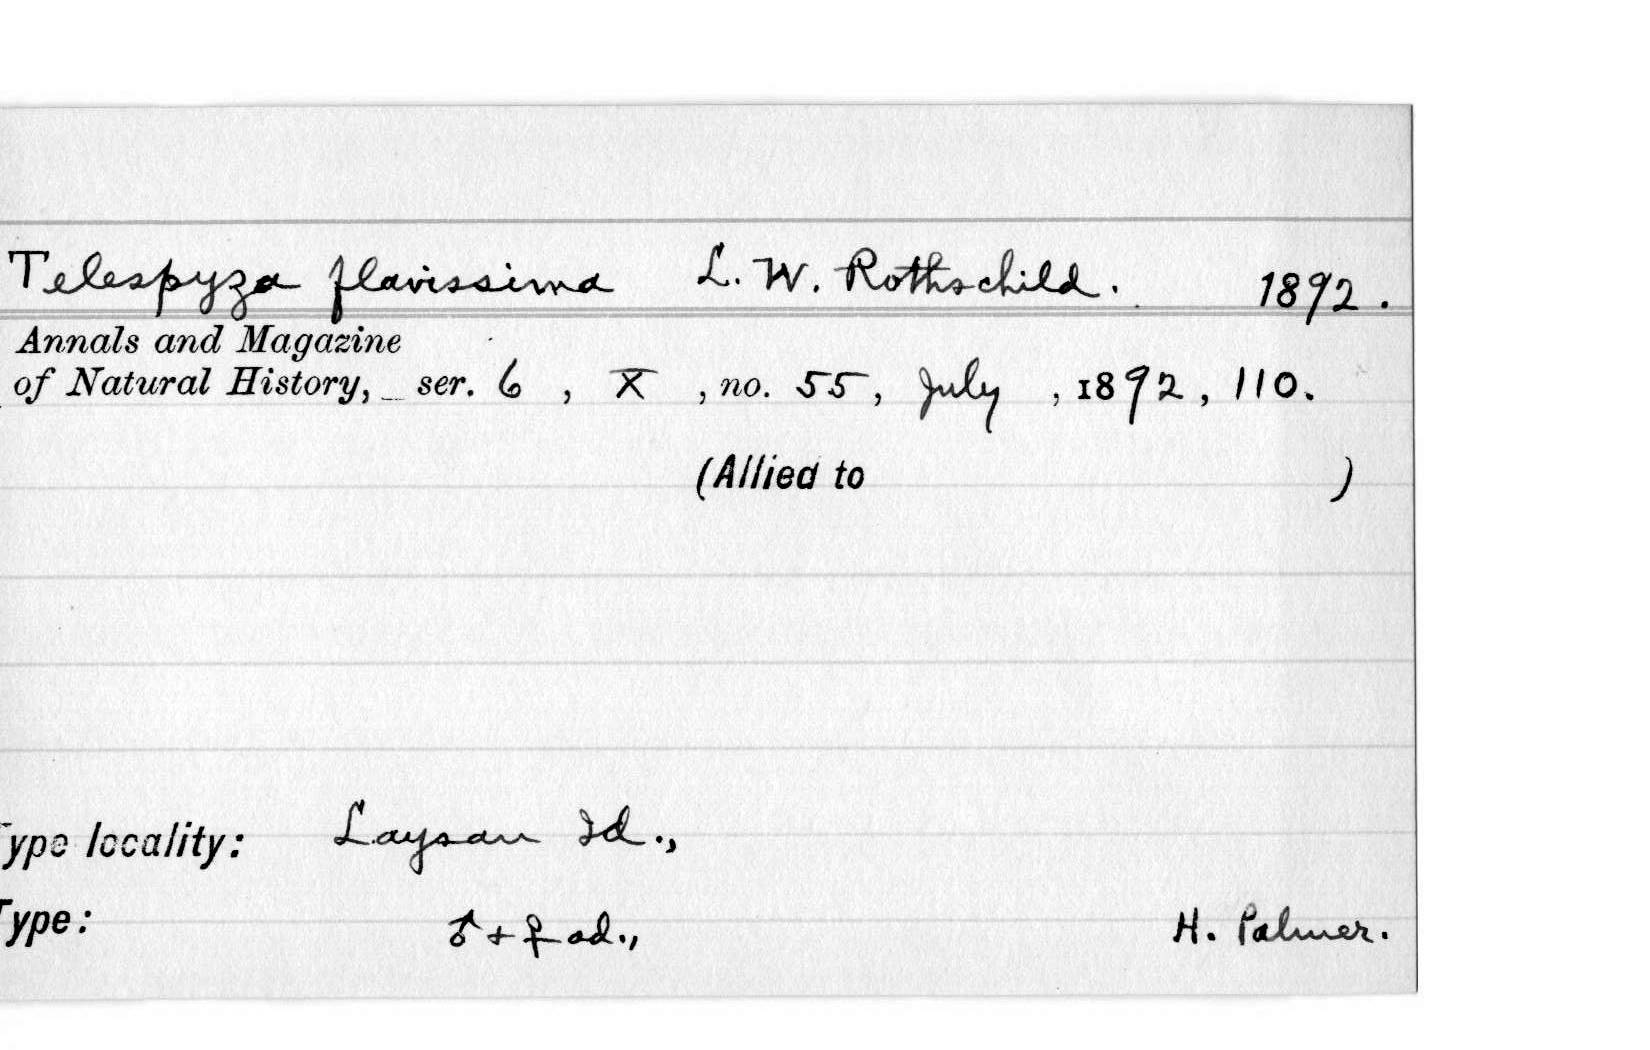 Telespyza flavissima L. W. Rothschild. 1892.
Annals and Magazine
of Natural History, ser. 6, X, no. 55, July, 1892, 110.
(Allied to )
Type locality: Laysan Id.,
Type: ♂ + ♀ ad., H. Palmer.